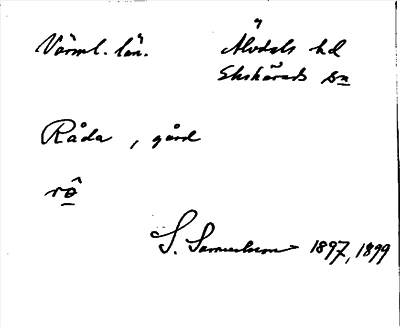 Värml. län.
Älvdals hd
Ekshärads sn
Råda, gård
rô
S. Samuelsson 1897, 1899